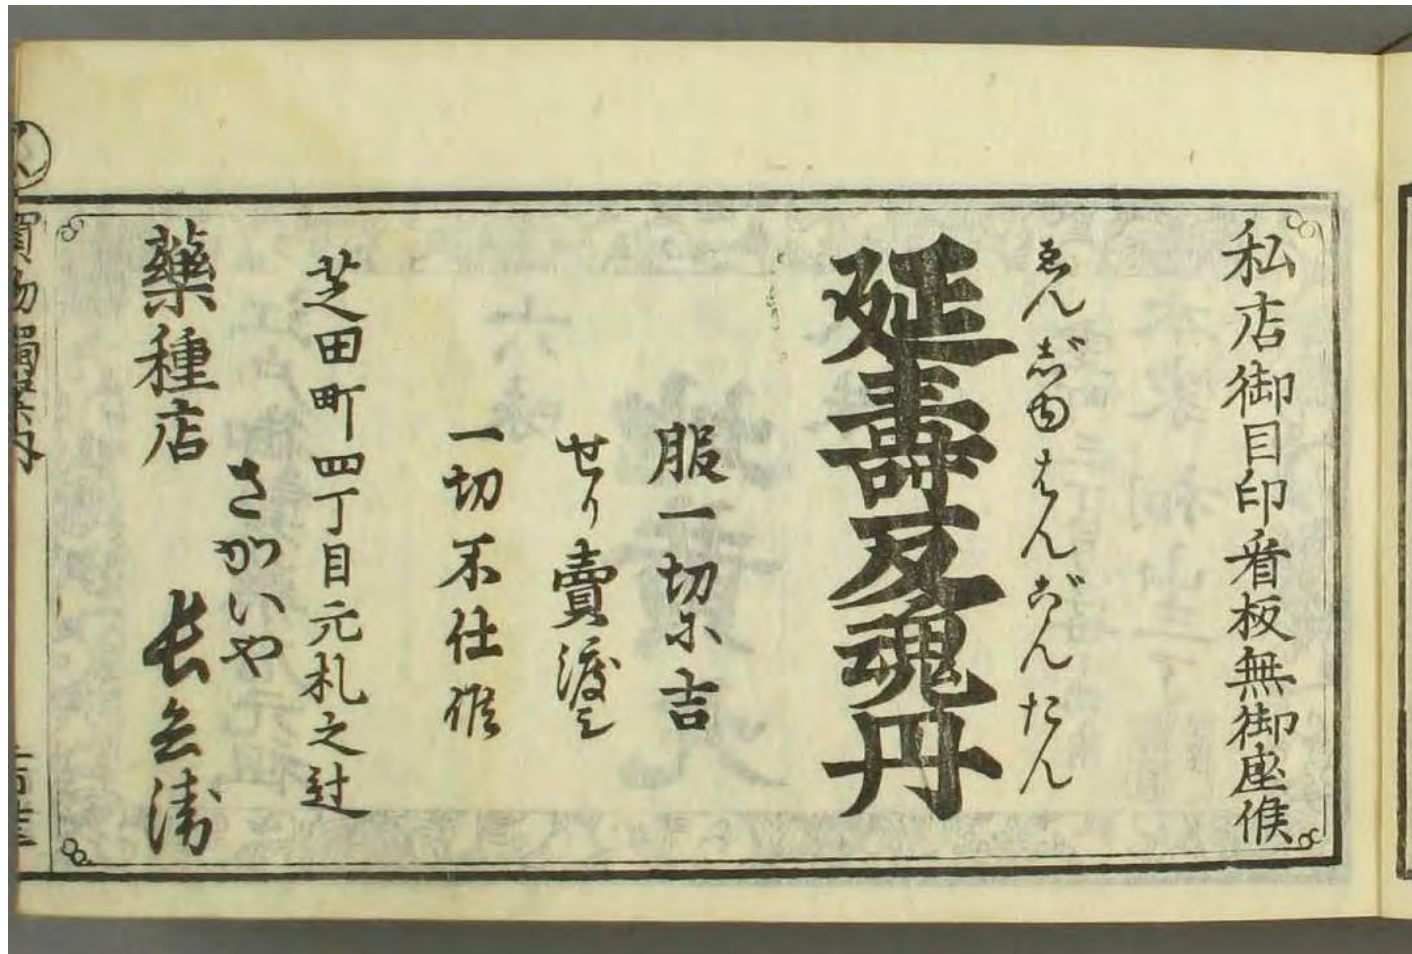 私店御目印看板無御座候
ゑんじゆはんごんたん
延壽反魂丹
服一切ニ吉
せり賣渡し
一切不仕候
芝田町四丁目元札之辻
さかいや
藥種店
長兵衛
買物獨案内